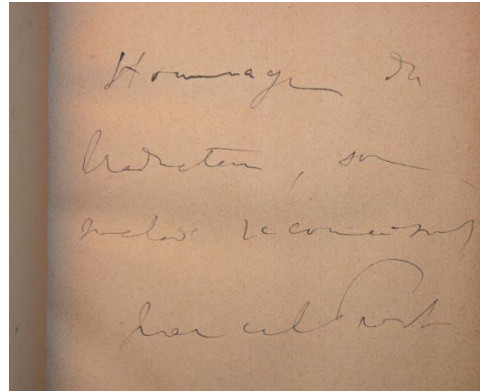 Hommage du
traducteur, son
malade reconnaissant
Marcel Proust